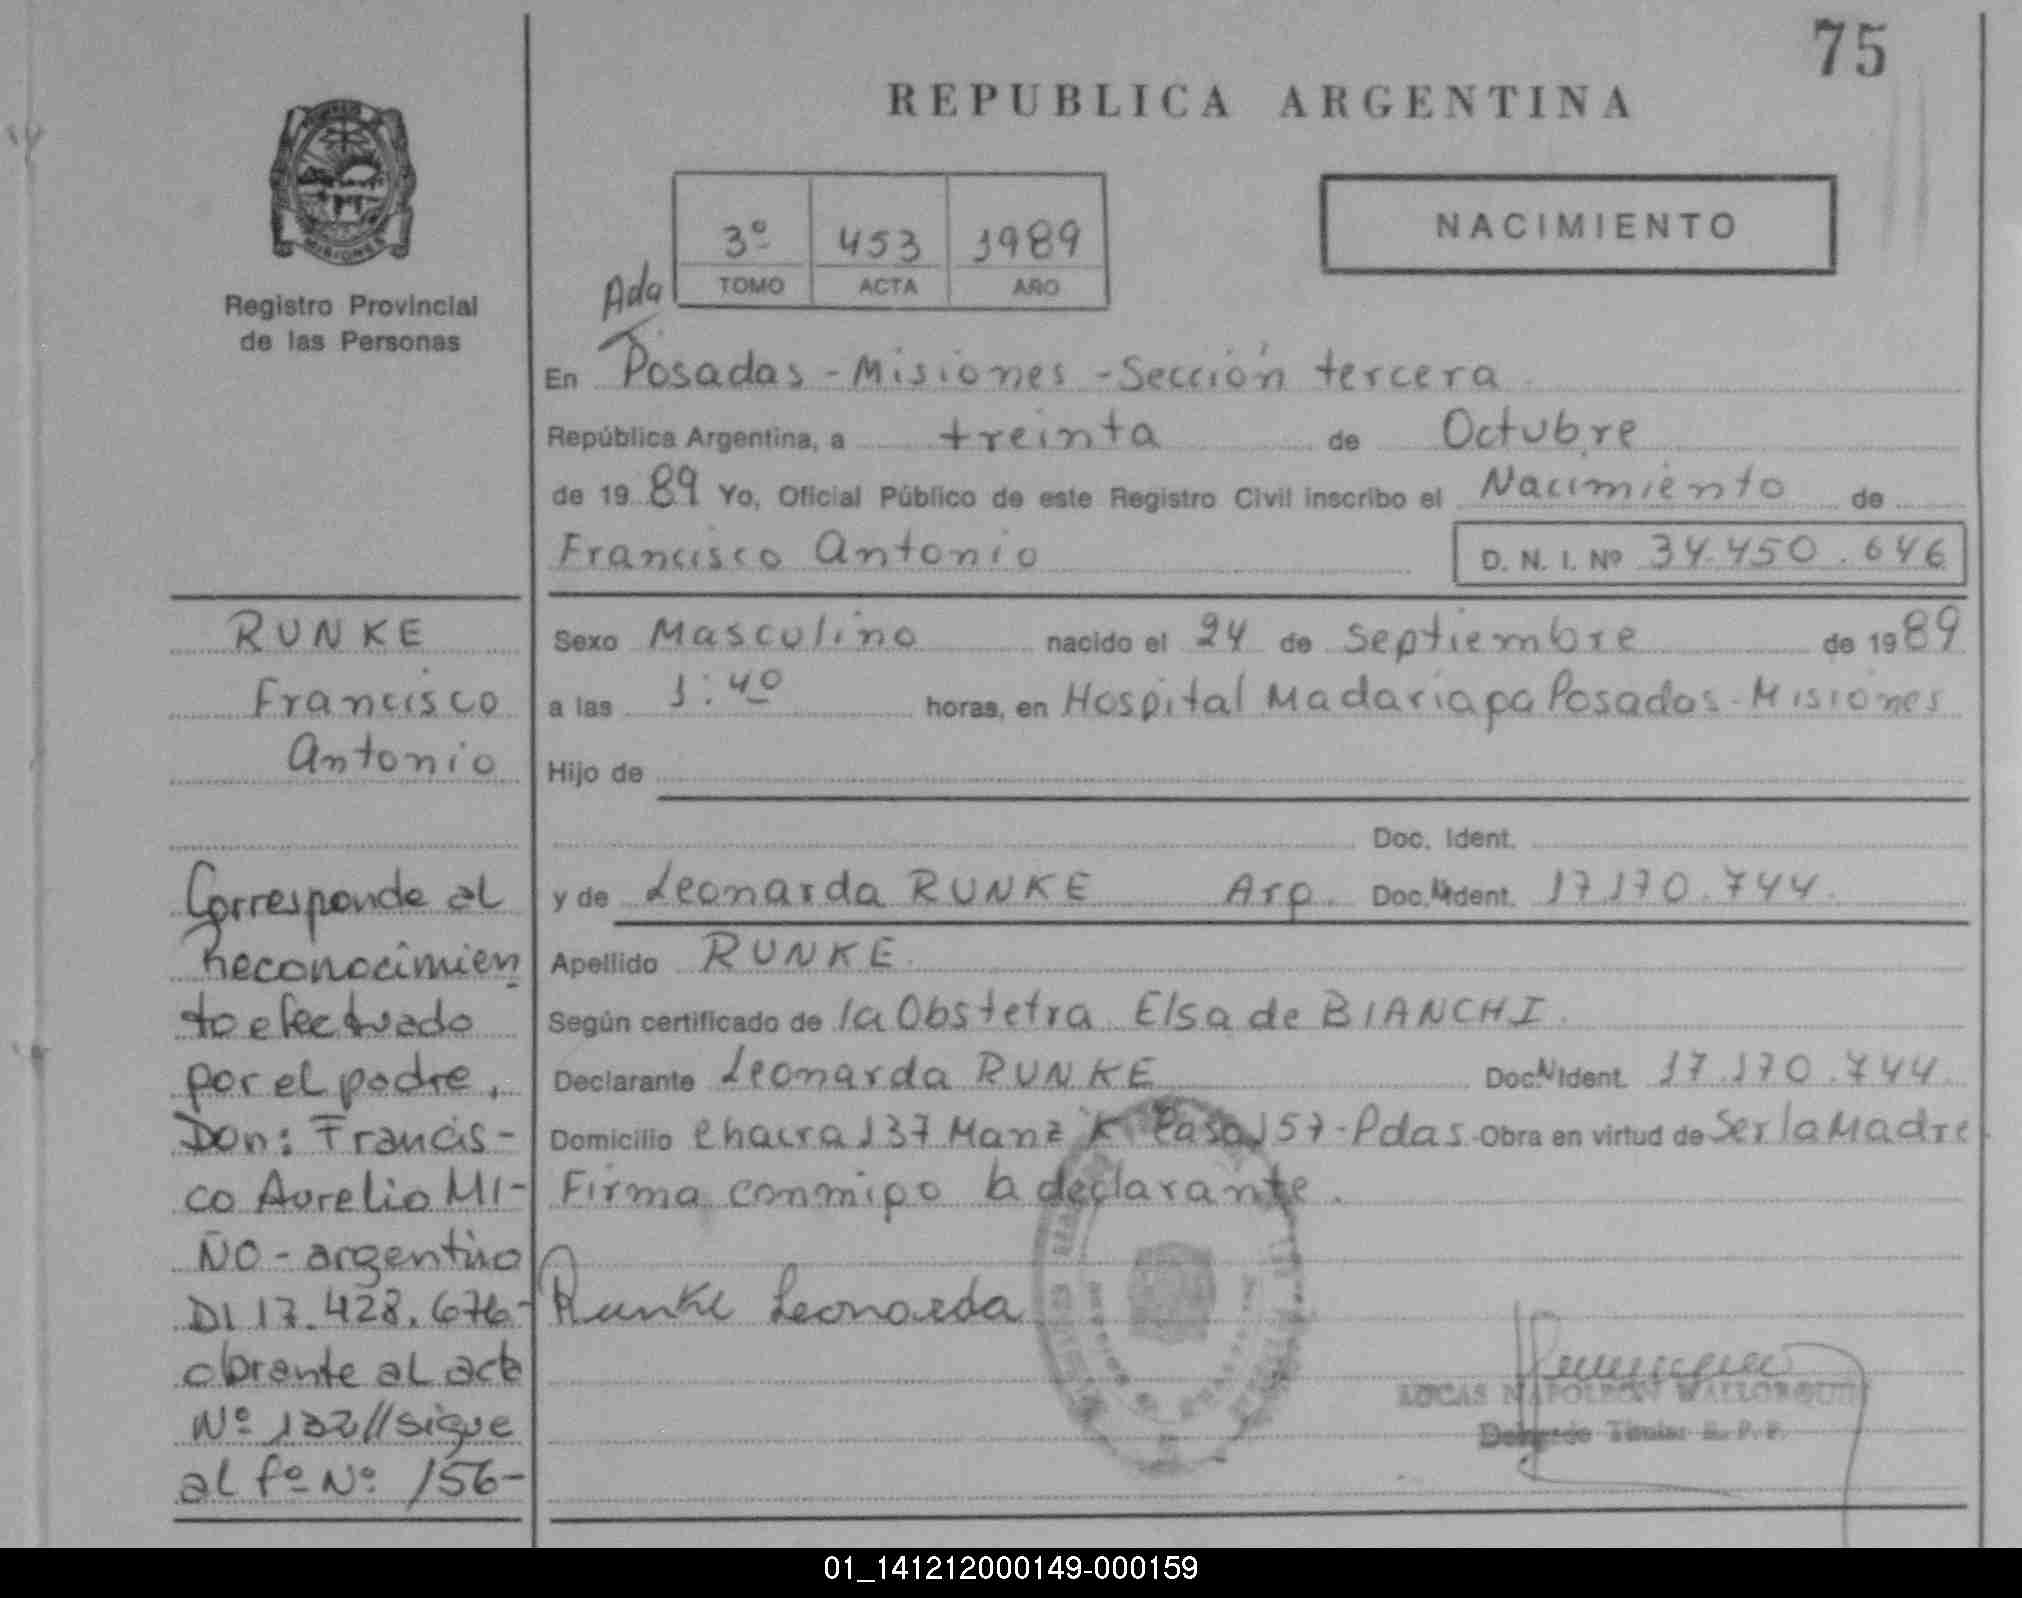 75
REPUBLICA ARGENTINA
MISIONES
Registro Provincial
de las Personas
3º 453 1989
TOMO ACTA AÑO
NACIMIENTO
Ada
En Posadas - Misiones - Sección tercera
República Argentina, a treinta de Octubre
de 1989 Yo, Oficial Público de este Registro Civil inscribo el Nacimiento de
Francisco Antonio D. N. I. Nº 34.450.646
Sexo Masculino nacido el 24 de Septiembre de 1989
a las 1:40 horas, en Hospital Madariaga Posadas - Misiones
Hijo de
Doc. Ident.
y de Leonarda RUNKE Arg. Doc. N Ident. 17.170.744.
Apellido RUNKE.
Según certificado de la Obstetra Elsa de BIANCHI.
Declarante Leonarda RUNKE Doc. N Ident. 17.170.744
Domicilio Chacra 137 Manz K Casa 157 - Pdas. Obra en virtud de Ser la Madre
Firma conmigo la declarante.
Runke Leonarda
LUCAS NAPOLEON
Titular R. P. P.
RUNKE
Francisco
Antonio
Corresponde al
Reconocimien
to efectuado
por el padre,
Don: Francis-
co Aurelio MI-
ÑO - argentino
DI 17.428.676-
obrante al acta
Nº 132//sigue
al fº Nº 156-
01_141212000149-000159